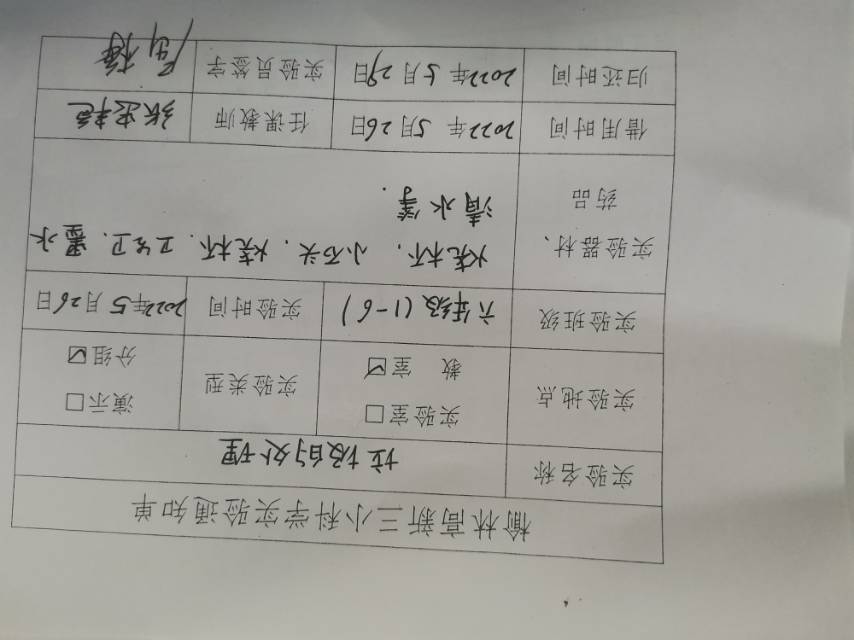 榆林高新三小科学实验通知单
实验名称 垃圾的处理
实验地点 实验室□ 教 室☑ 实验类型 演示□ 分组☑
实验班级 六年级(1-6) 实验时间 2022年5月26日
实验器材、药品 烧杯、小石头、烧杯、卫生卫、墨水
清水等.
借用时间 2022年 5月26日 任课教师
归还时间 2022年 5月29日 实验员签字